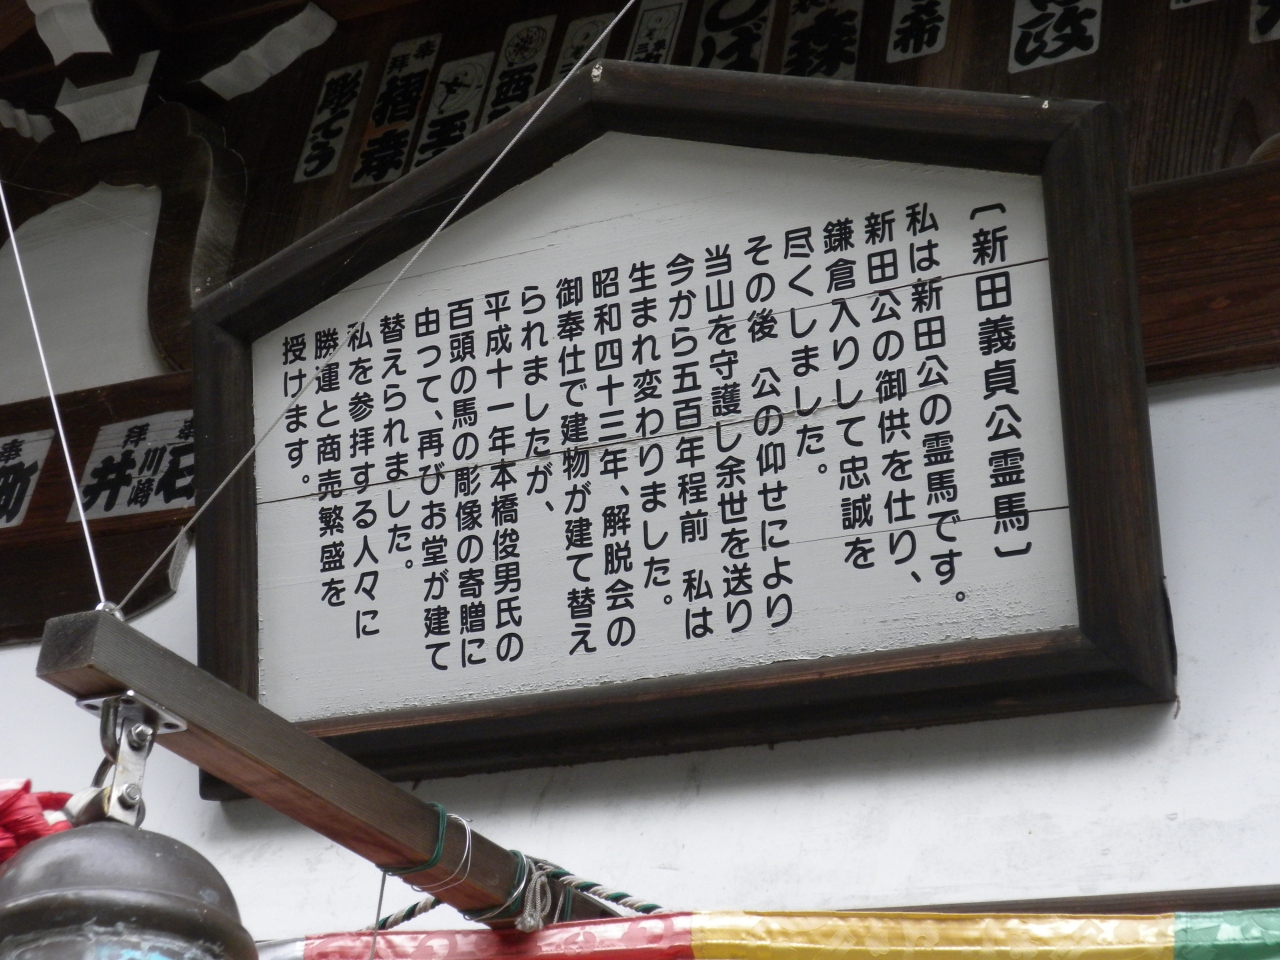 〔新田義貞公霊馬〕
私は新田公の霊馬です。
新田公の御供を仕り、
鎌倉入りして忠誠を
尽くしました。
その後 公の仰せにより
当山を守護し余世を送り
今から五百年程前 私は
生まれ変わりました。
昭和四十三年、解脱会の
御奉仕で建物が建て替え
られましたが、
平成十一年本橋俊男氏の
百頭の馬の彫像の寄贈に
由って、再びお堂が建て
替えられました。
私を参拝する人々に
勝運と商売繁盛を
授けます。
彫てう